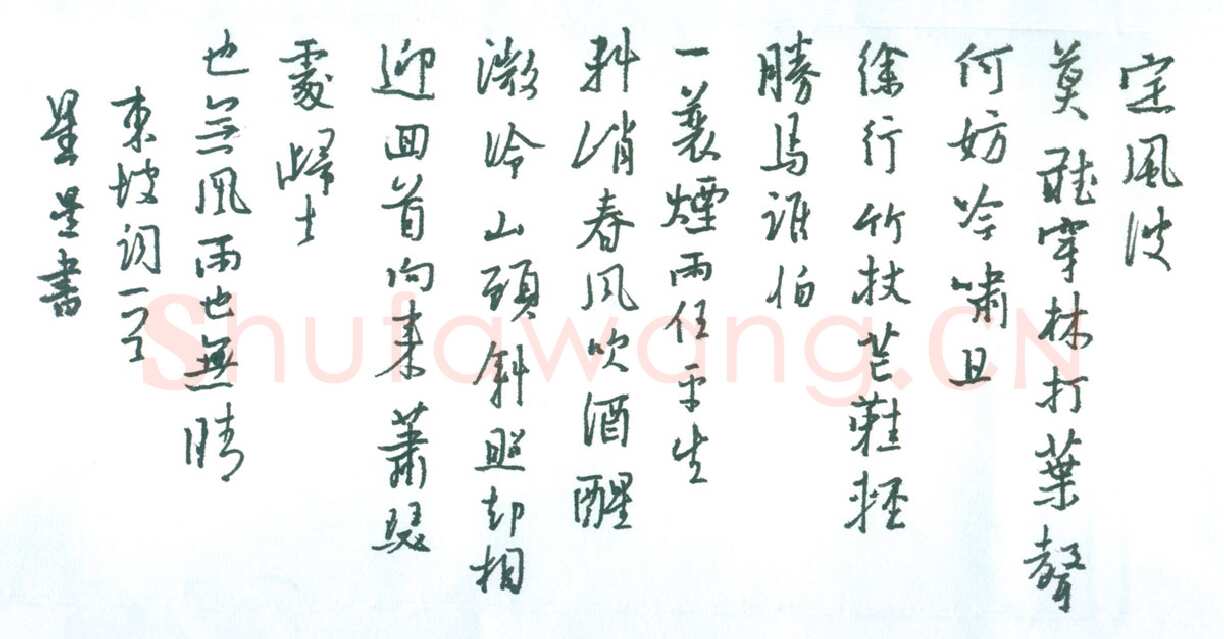 定風波
莫聽穿林打葉聲
何妨吟嘯且
徐行竹杖芒鞋輕
勝馬誰怕
一蓑煙雨任平生
料峭春风吹酒醒
微冷山頭斜照却相
迎回首向來蕭瑟
處歸去
也無風雨也無晴
東坡詞一首
星星書
Shufawang.CN